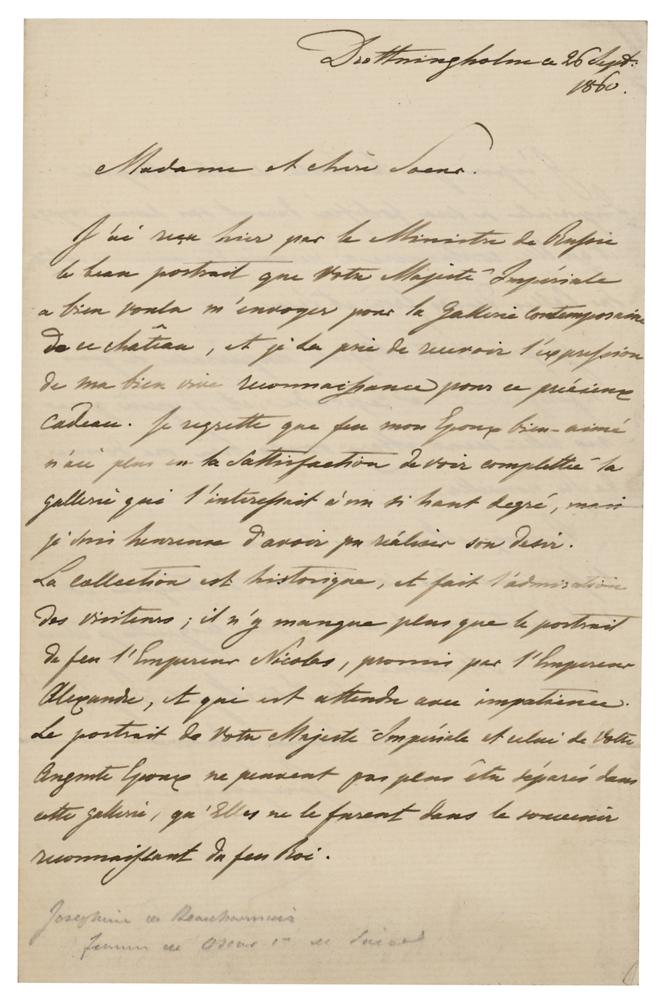 Drottningholm ce 26 Sept:
1860.
Madame et chère Soeur.
J'ai reçu hier par le Ministre de Russie
le beau portrait que Votre Majesté Impériale
a bien voulu m'envoyer pour la Gallerie Contemporaine
de ce château, et je La prie de recevoir l'expression
de ma bien vive reconnaissance pour ce précieux
cadeau. Je regrette que feu mon Epoux bien-aimé
n'aie plus eu la Sattisfaction de voir complettée la
gallerie qui l'interessait à un si haut degré, mais
je suis heureuse d'avoir pu réaliser son desir.
La collection est historique, et fait l'admiration
des visiteurs; il n'y manque plus que le portrait
de feu l'Empereur Nicolas, promis par l'Empereur
Alexandre, et qui est attendu avec impatience.
Le portrait de Votre Majesté Impériale et celui de Votre
Auguste Epoux ne peuvent pas plus être séparés dans
cette gallerie, qu'Elles ne le furent dans le souvenir
reconnaissant du feu Roi.
Josephine de Beauharnais
femme de Oscar 1er de Suède